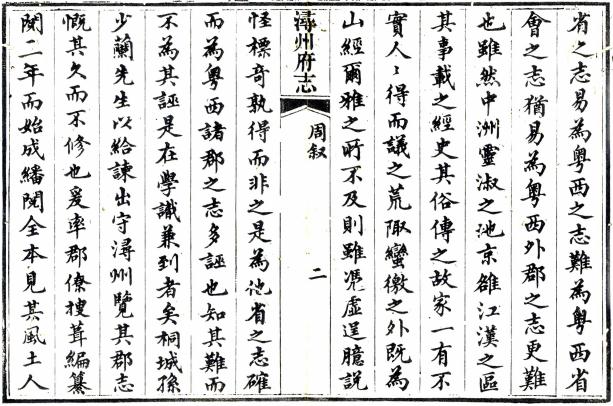 省之志易為粵西之志難為粵西省
會之志猶易為粵西外郡之志更難
也雖然中洲靈淑之池京雒江漢之區
其事載之經史其俗傳之故家一有不
實人〻得而議之荒陬蠻徼之外既為
山經爾雅之所不及則雖憑虛逞臆說
潯州府志
周叙
二
怪標奇孰得而非之是為他省之志確
而為粵西諸郡之志多誣也知其難而
不為其誣是在學識兼到者矣桐城孫
少蘭先生以給諫出守潯州覽其郡志
慨其久而不修也爰率郡僚搜葺編纂
閱二年而始成繙閱全本見其風土人